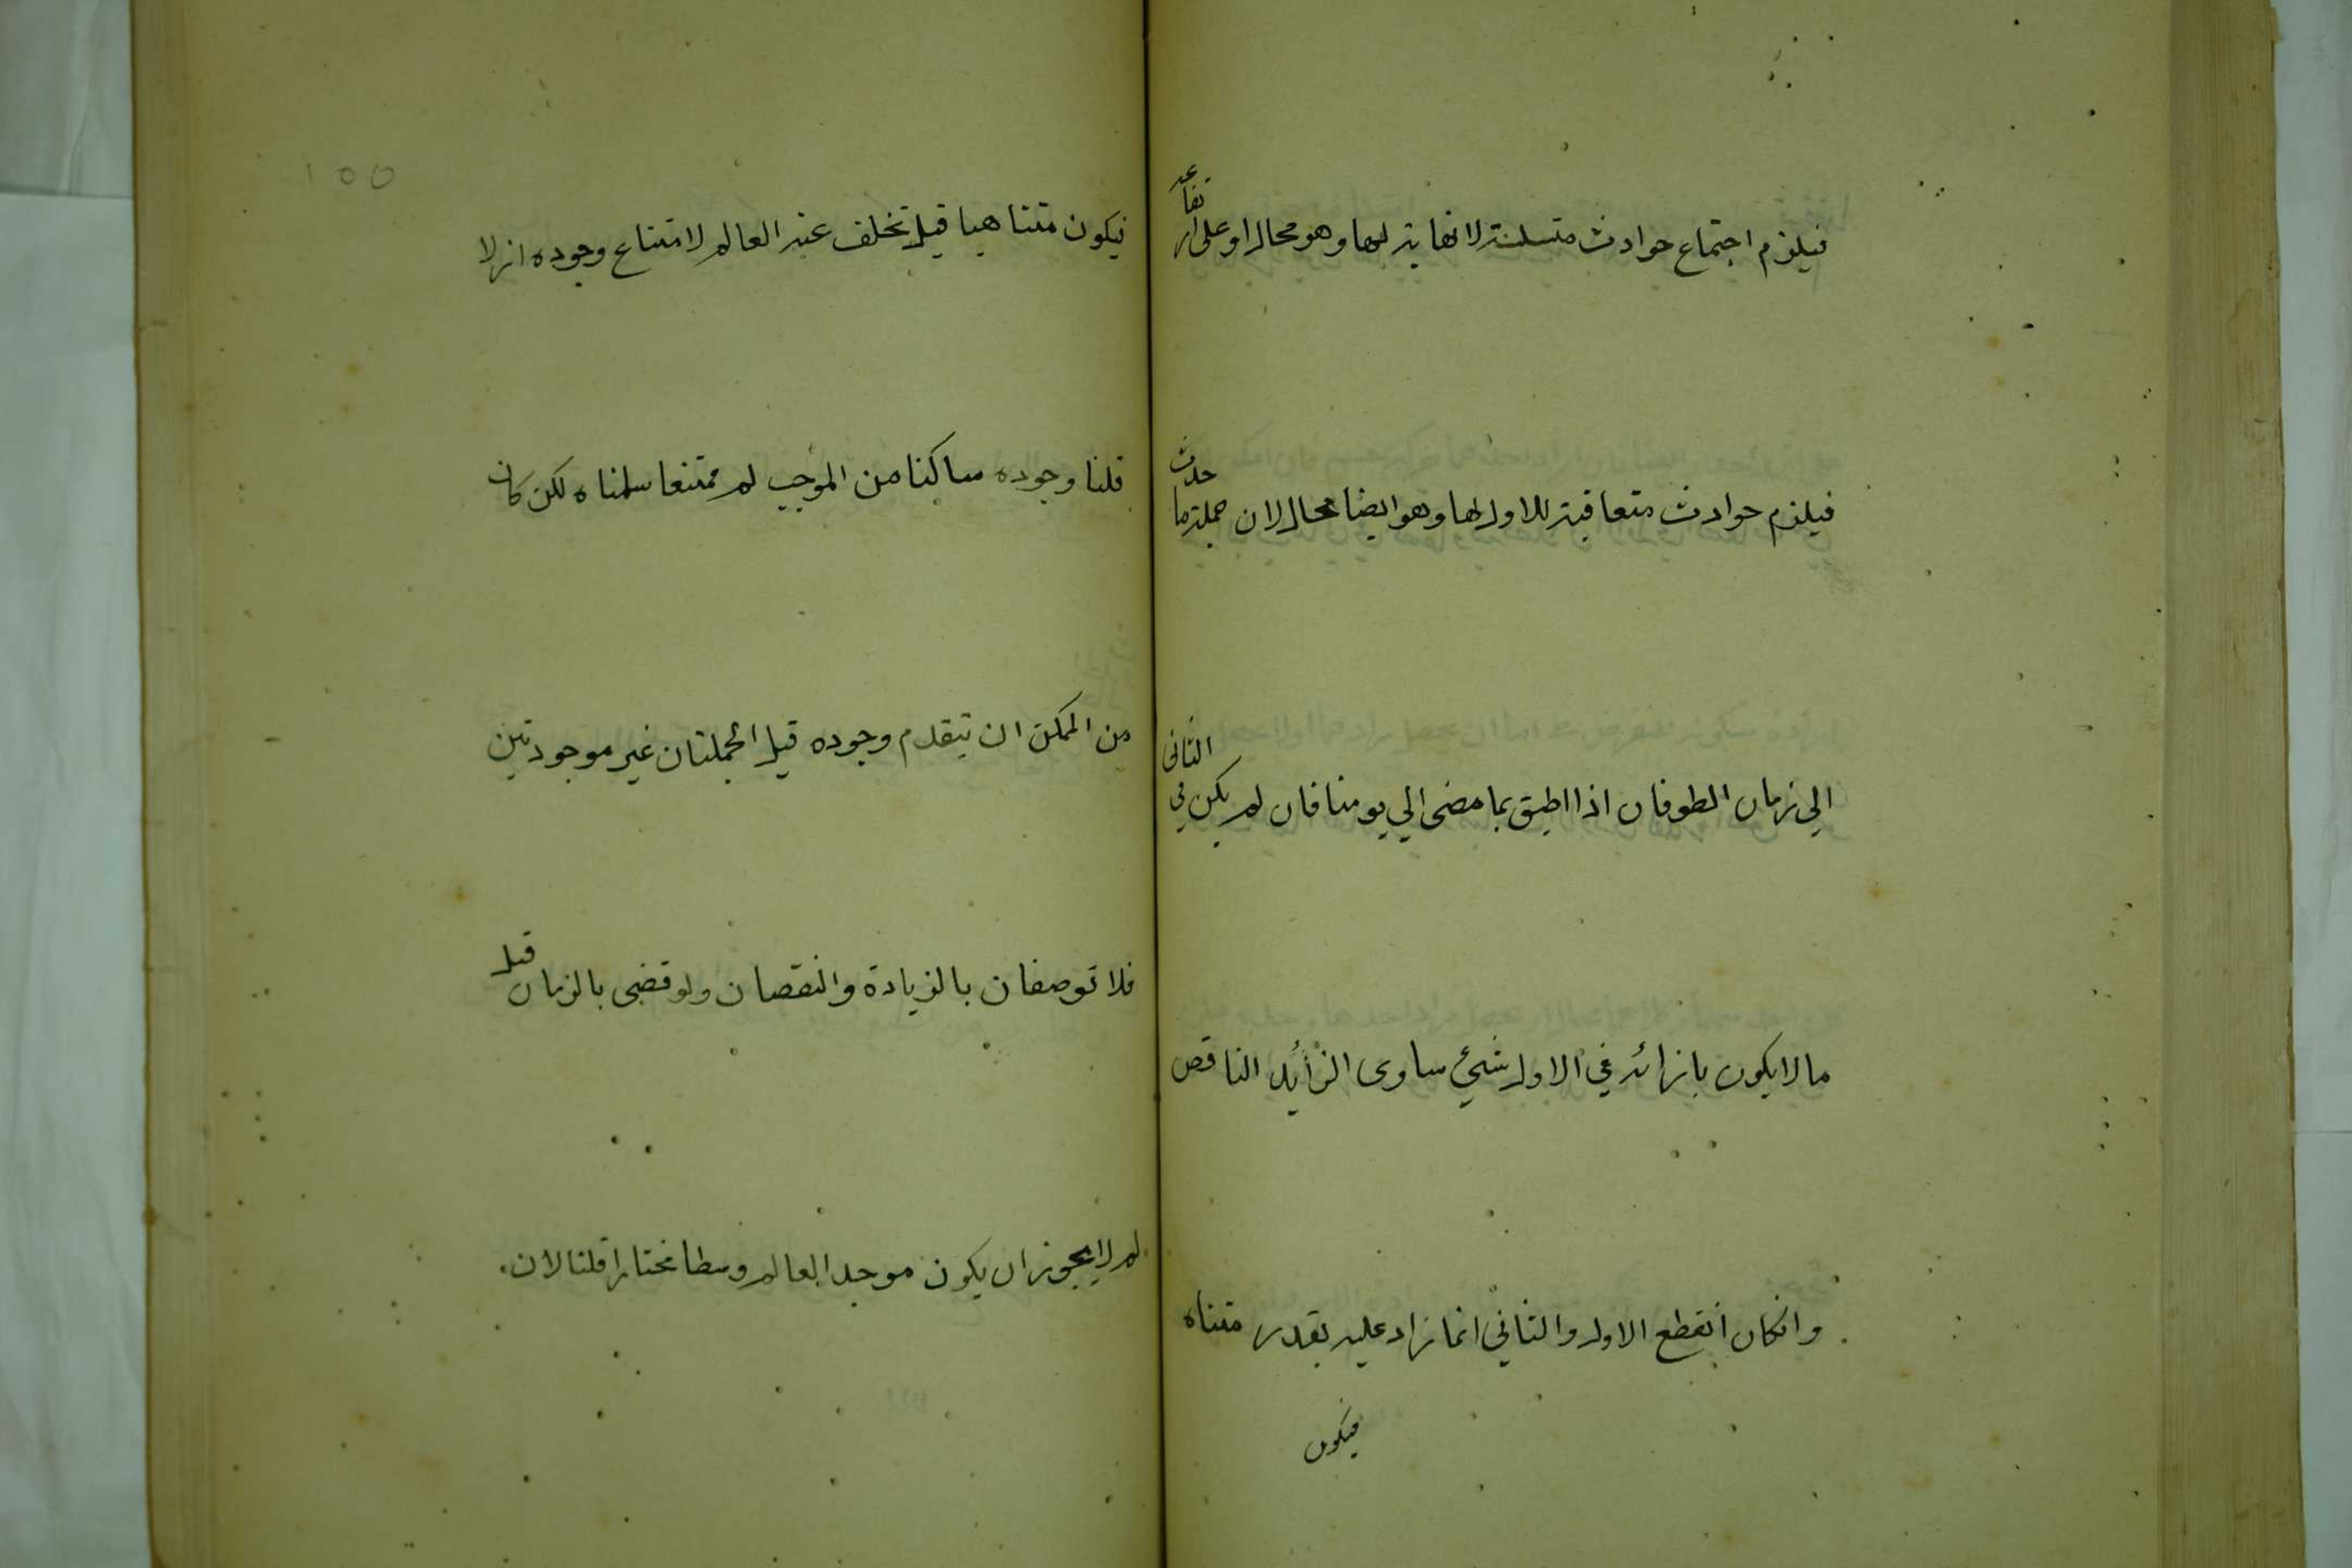 فيلزم اجتماع حوادث متسلسلة لا نهاية لها وهو محال او على ارتفاعه
فيلزم حوادث متعاقبة لا اول لها وهو ايضا محال لان جملة ما حدث
الي زمان الطوفان اذا اطبق بما مضى الي يومنا فان لم يكن في الثانى
ما لا يكون بازائه في الاول شيء ساوى الزائد الناقص
وانكان انقطع الاول والثاني انما زاد عليه بقدر متناه
فيكون
١٥٥
فيكون متناهيا قيل تخلف عنه العالم لامتناع وجوده ازلا
قلنا وجوده ساكنا من الموجب لم ممتنعا سلمناه لكن كان
من الممكن ان يتقدم وجوده قيل الجملتان غير موجودتين
فلا توصفان بالزيادة والنقصان ولو قضى بالزمان قيل
لم لا يجوز ان يكون موجد العالم وسطا مختارا قلنا لان